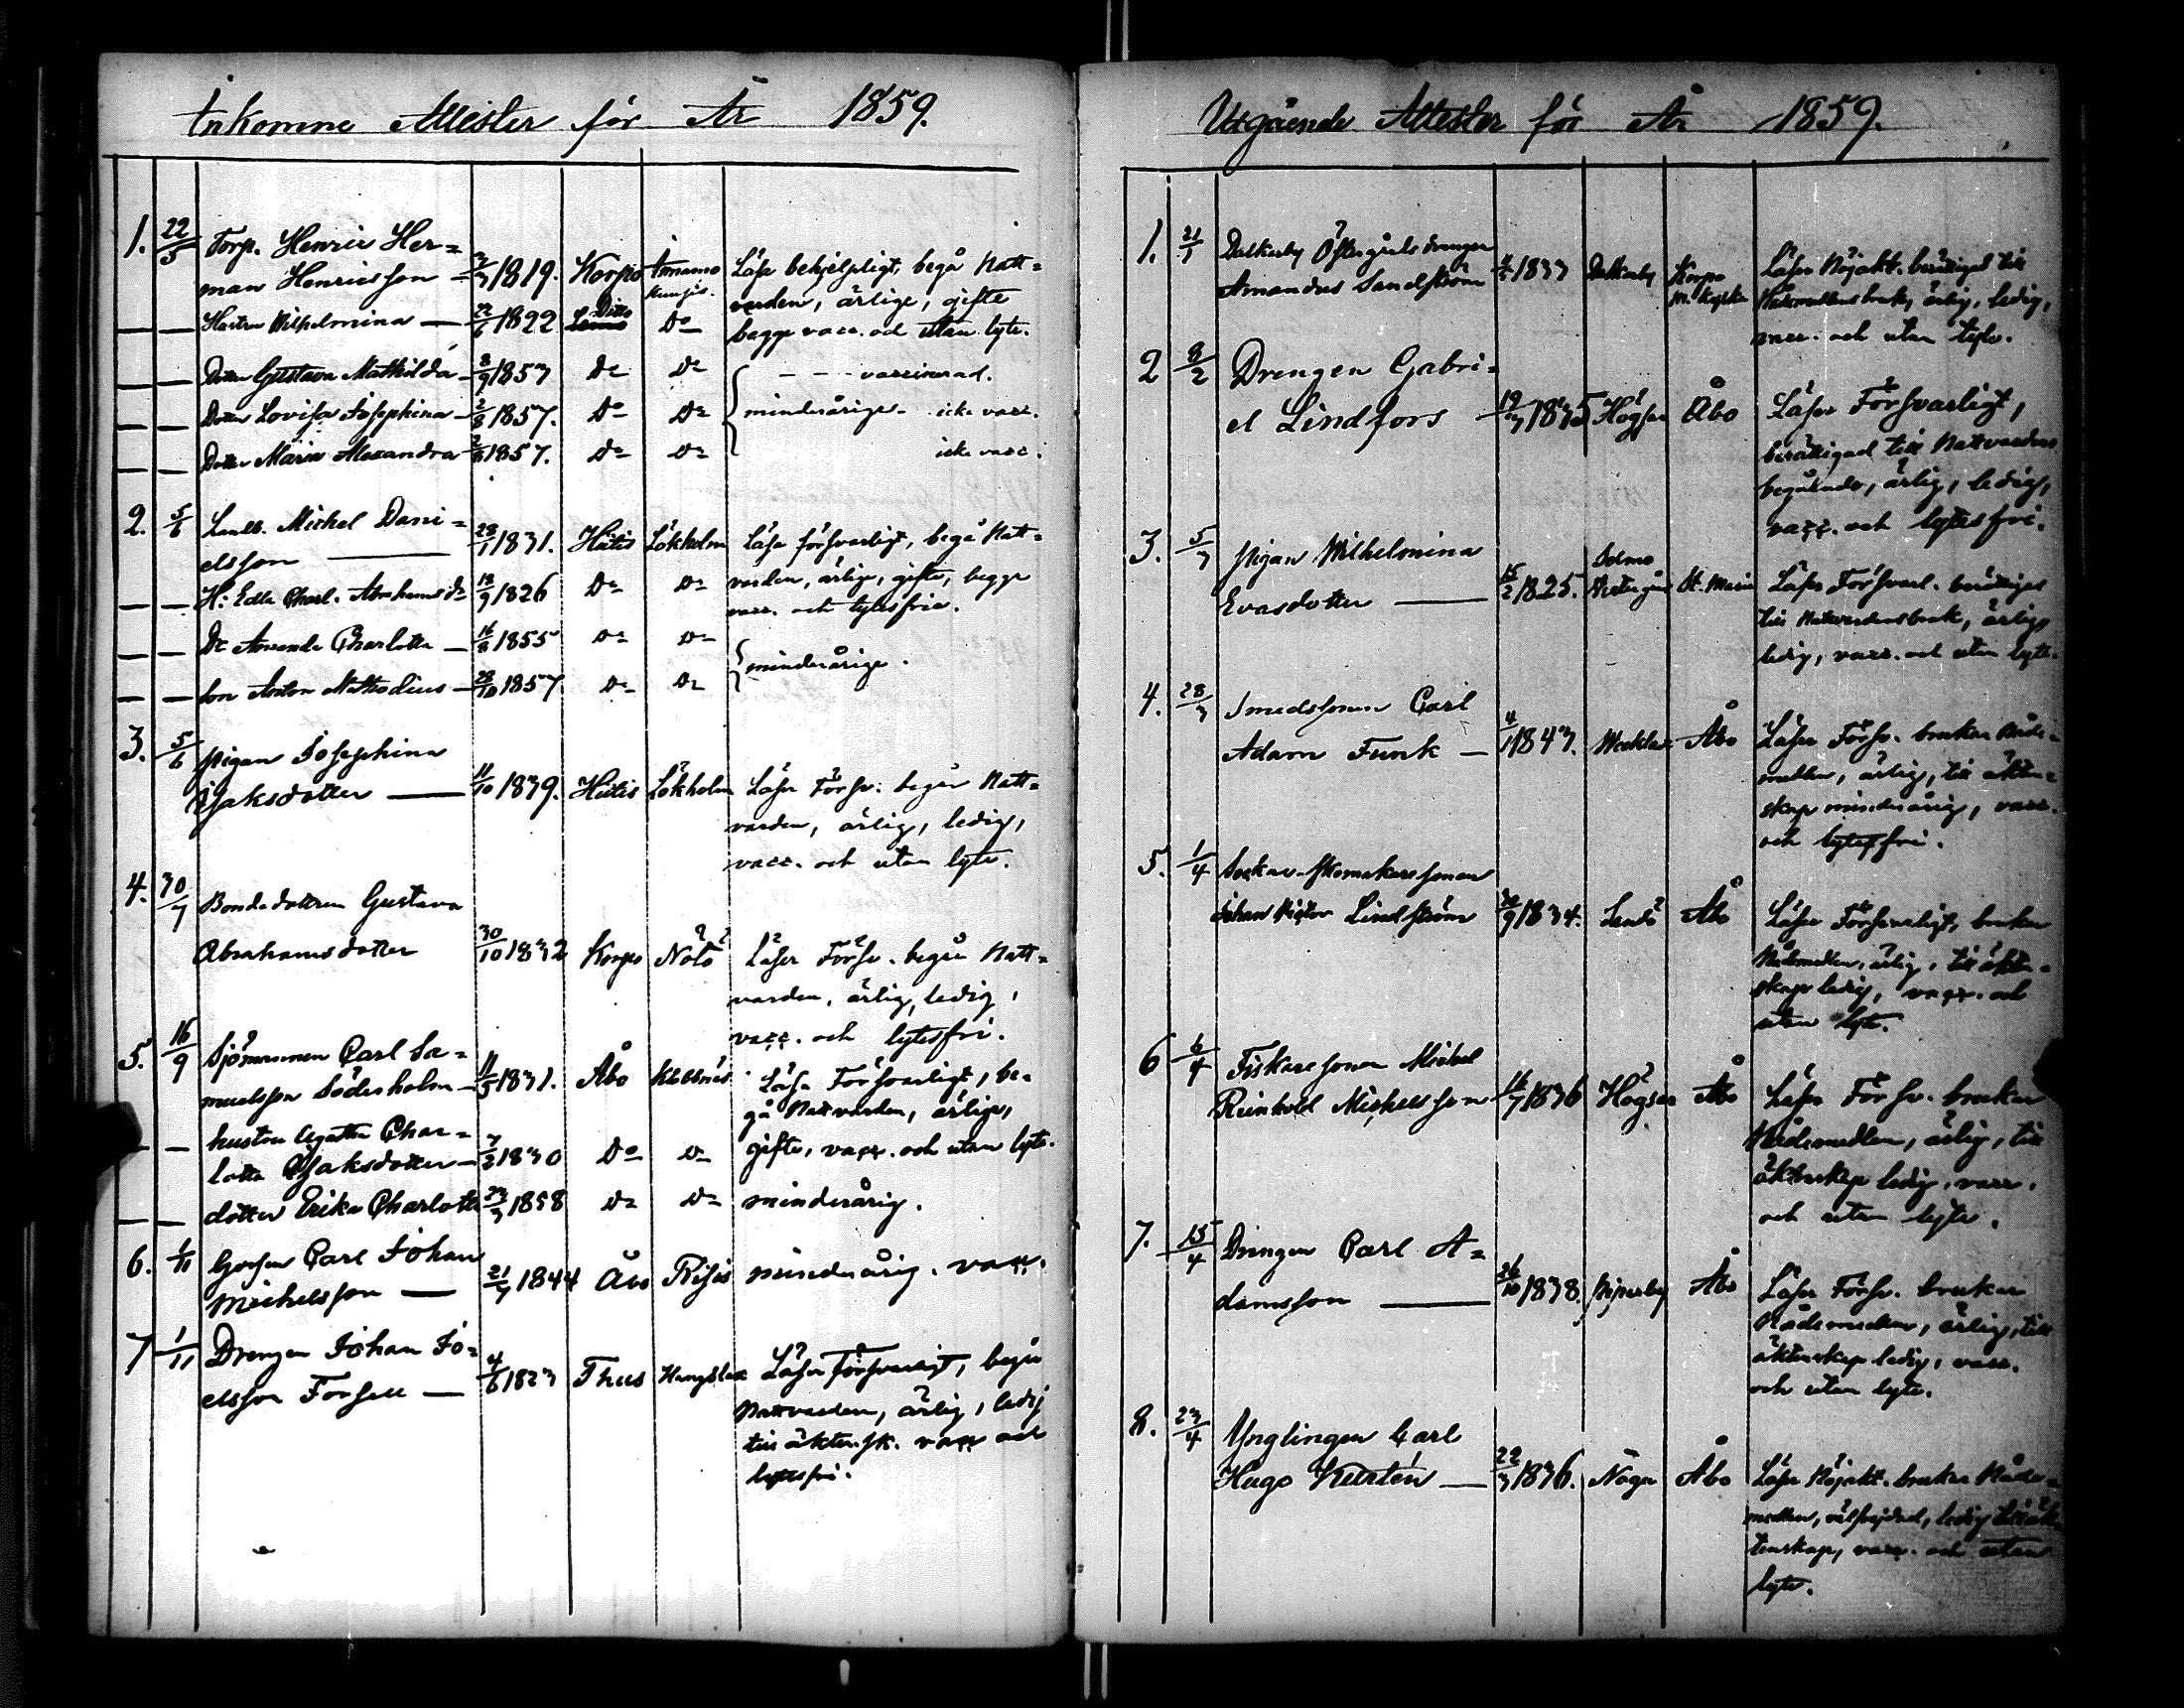 Inkomne Attester för År 1859.
1. 22/5 Torp. Henric Her=
man Henricsson — 1819. Korpo
Läsa behjelpligt, begå Natt=
varden, ärlige, gifte
begge vacc. och utan lyte.
— — Hustru Wilhelmina — 22/6 1822 Ditto Do
— — Dotter Gustava Mathilda — 1853 Do Do — — vaccinerad.
— — Dotter Lovisa Josephina — 2/8 1857. Do Do minderåriga icke vacc.
— — Dotter Maria Alexandra 2/8 1857. Do Do icke vacc.
2. 5/6 Landb. Michel Dani=
elsson — 28/1 1831. Hitis Lökholm Läsa försvarligt, begå Natt=
varden, ärlige, gifte, begge
vacc. och lytesfrie.
— — H: Edla Charl. Abrahamsdr 1826 Do Do
— — Dr Amanda Charlotta — 16/8 1855 Do Do
minderårige.
— — Son Anton Mathodius — 28/10 1857 Do Do
3. 5/6 Pigan Josephina
Isaksdotter — 11/10 1839. Hitis Lökholm Läser Försv. begår Natt=
varden, ärlig, ledig,
vacc. och utan lyte.
4. 30/7 Bondedottren Gustava
Abrahamsdotter 30/10 1832 Korpo Nötö Läser Försv. begår Natt=
varden, ärlig, ledig,
vacc. och lytesfri.
5. 16/9 Sjömannen Carl Sa=
muelsson Söderholm — 11/5 1831. Åbo Klobbnäs Läsa Försvarligt, be=
gå Nattvarden, ärlige,
gifte, vacc. och utan lyte.
— — hustru Agatha Char=
lotta Isaksdotter — 7/2 1830 Do Do
— — dotter Erika Charlotta 1858 Do Do minderårig.
6. Gossen Carl Johan
Michelsson — 21/7 1844 Åbo Risis minderårig. vacc.
7 1/11 Drengen Johan Jo=
elsson Forsell — 4/6 1823 Thus Läser Försvarligt, begår
Nattvarden, ärlig, ledig
till äktensk. vacc och
lytesfri.
Utgående Attester för År 1859.
1. 21/1 Dalkarby Östergårds drengen
Amandus Sandström 1833 Dalkarby Korpo
Läser Nöjakt. berättigad till
Nådemedlens bruk, ärlig, ledig,
vacc. och utan lyte.
2 8/2 Drengen Gabri=
el Lindfors — 19/3 1835 Högsar Åbo Läser Försvarligt,
berättigad till Nattvardens
begående, ärlig, ledig,
vacc. och lytesfri.
3. 5/3 Pigan Wilhelmina
Evasdotter — 15/2 1825. St. Marie Läser Försvarl. berättigad
till Nattvardens bruk, ärlig,
ledig, vacc. och utan lyte.
4. 28/3 Smedssonen Carl
Adam Funk — 4/1 1843. Åbo Läser Försv. brukar Nåde=
medlen, ärlig, till äkten=
skap minderårig, vacc.
och lytesfri.
5. 1/4 Sockne-Skomakaressonen
Johan Victor Lindström 1834. Lendö Åbo Läser Försvarligt, brukar
Nådemedlen, ärlig, till äkten=
skap ledig, vacc. och
utan lyte.
6 6/4 Fiskaressonen Michel
Reinhold Michelsson 1836 Högsar Åbo Läser Försv. brukar
Nådemedlen, ärlig, till
äktenskap ledig, vacc.
och utan lyte.
7. 15/4 Drengen Carl A=
damsson — 26/10 1838. Piparby Åbo Läser Försv. brukar
Nådemedlen, ärlig, till
äktenskap ledig, vacc.
och utan lyte.
8. 23/4 Ynglingen Carl
Hugo Kurtén — 22/3 1836. Nagu Åbo Läser Nöjakt. brukar Nåde=
medlen, välfrejdad, ledig till äk
tenskap, vacc. och utan
lyte.